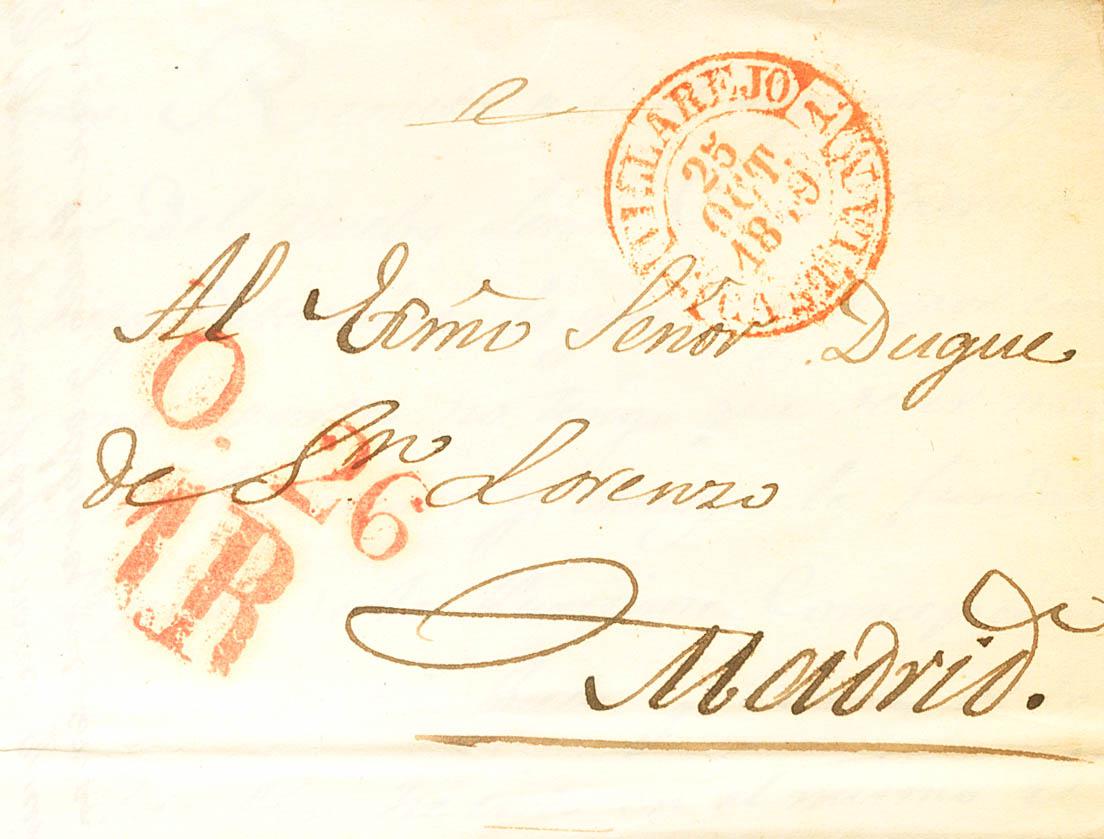 VILLAREJO
25
OCT.
1849
Al Exmo Señor Duque
de Sn Lorenzo
Madrid.
O.
26
1R